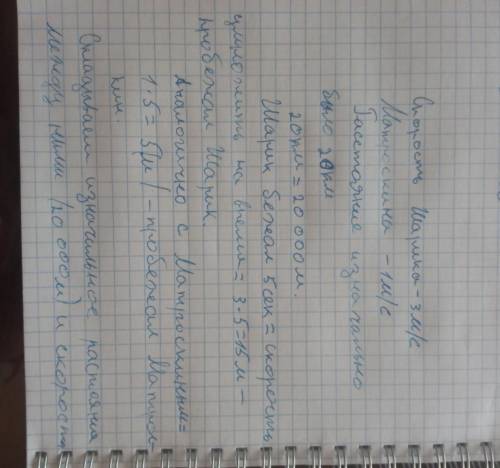 Скорость Шарика - 3 м/с
Матроскина - 1 м/с
Расстояние изначально
было 20км
20км = 20 000 м.
Шарик бежал 5 сек = скорость
умножить на время = 3·5=15 м -
пробежал Шарик.
Аналогично с Матроскиным =
1·5 = 5(м) - пробежал Матрос-
кин.
Складываем изначальное растояние
между ними (20 000м) и скорость